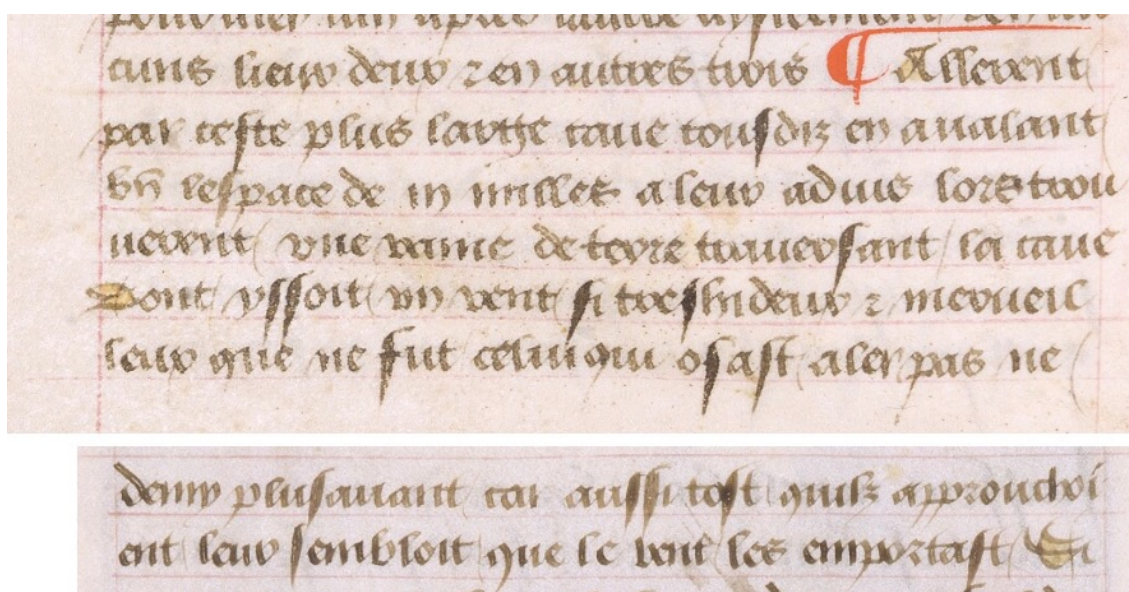 cuns lieux deux ⁊ en autres trois ¶ Allerent
par ceste plus large caue tousdiz en aualant
bñ lespace de iii milles a leur aduis lors trou
uerent vne vaine de terre trauersant la caue
Dont yssoit vn vent si treshideux ⁊ merueil
leux que ne fut celui qui osast aler pas ne
demy plusauant car aussi tost quilz approuchoi
ent leur sembloit que le vent les emportast Si